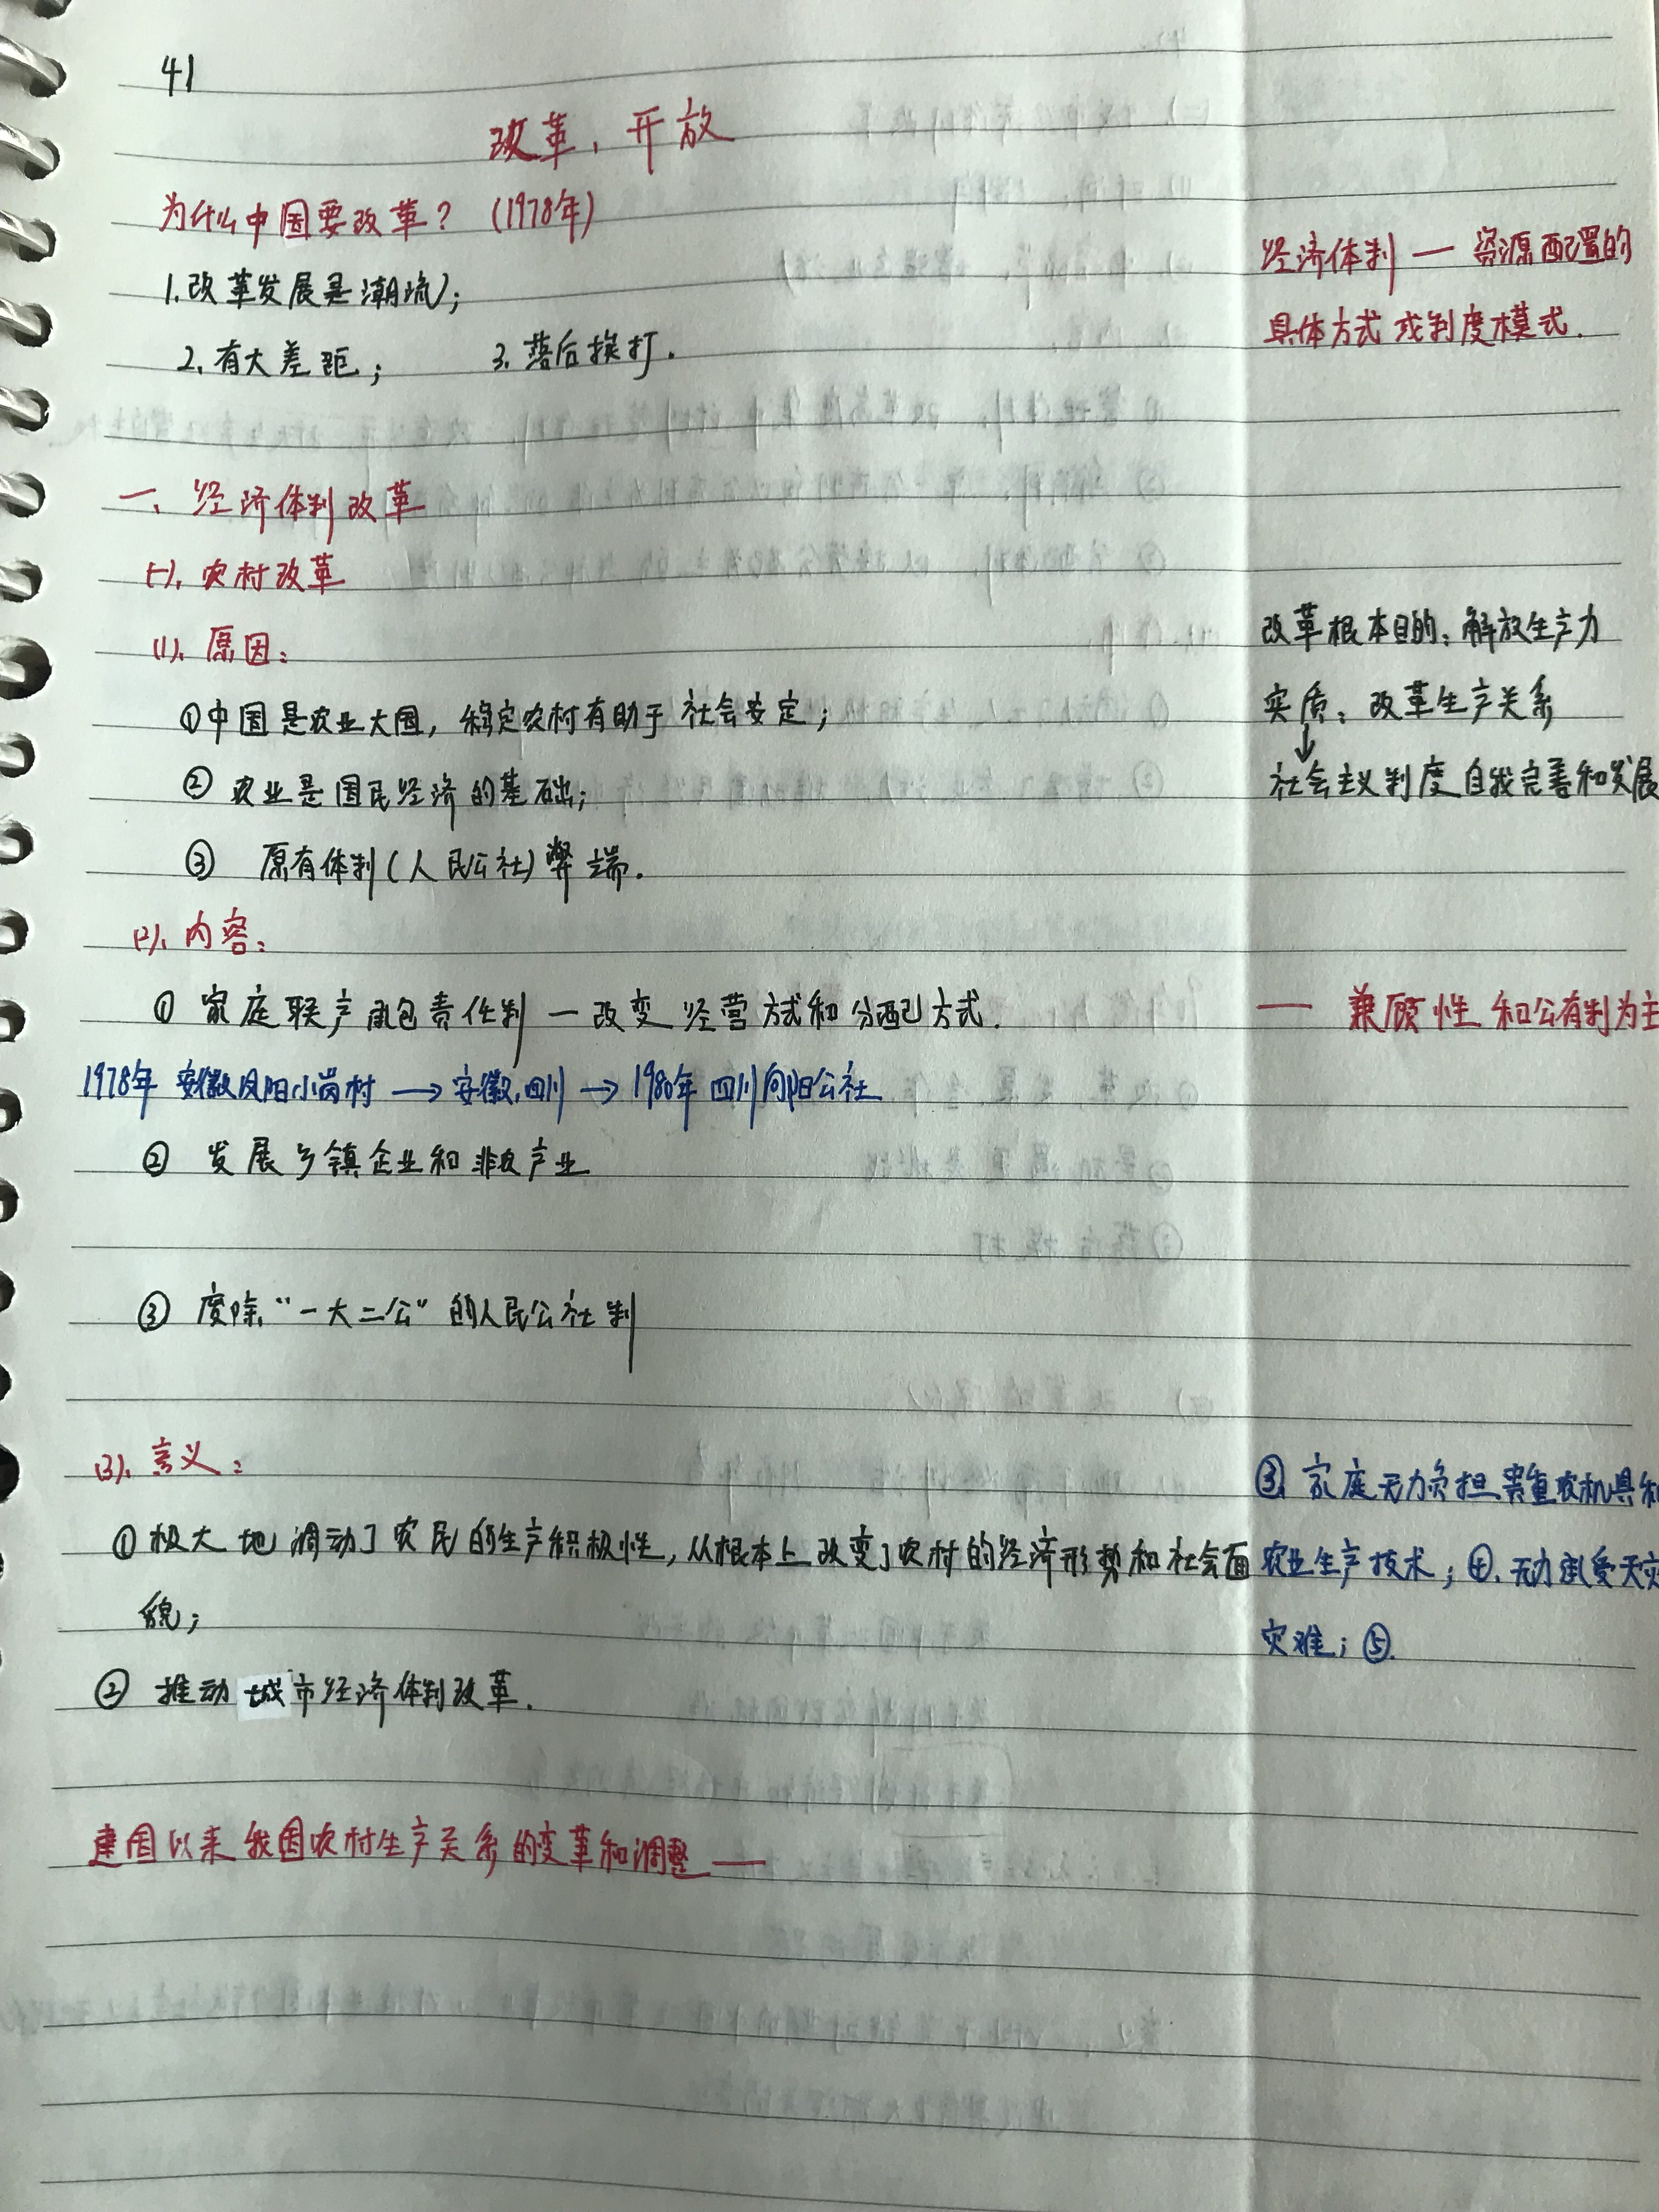 41
改革、开放
为什么中国要改革？（1978年）
1.改革发展是潮流；
2.有大差距；  3.落后挨打.
经济体制 — 资源配置的
具体方式或制度模式.
一、经济体制改革
(一).农村改革
(1).原因：
①中国是农业大国，稳定农村有助于社会安定；
②农业是国民经济的基础；
③ 原有体制(人民公社)弊端.
改革根本目的：解放生产力
实质：改革生产关系
↓
社会主义制度自我完善和发展
(2).内容：
① 家庭联产承包责任制 — 改变经营方式和分配方式.
— 兼顾性 和公有制为主
1978年 安徽凤阳小岗村 → 安徽.四川 → 1980年 四川向阳公社
② 发展乡镇企业和非农产业
③ 废除“一大二公”的人民公社制
(3).意义：
①极大地调动了农民的生产积极性，从根本上改变了农村的经济形势和社会面
貌；
② 推动城市经济体制改革.
③.家庭无力负担贵重农机具和
农业生产技术；④.无力承受天灾
灾难；⑤.
建国以来我国农村生产关系的变革和调整 —